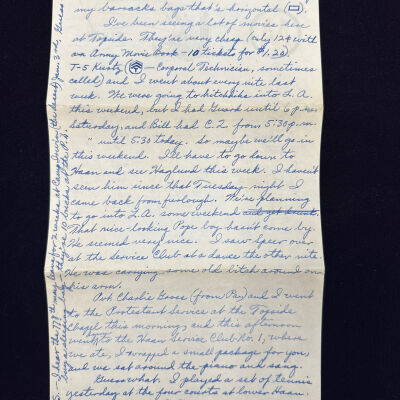 my barracks bags that's horizontal
I've been seeing a lot of movies here
at Topside. They're very cheap (only 12¢ with
an Army Movie Book - 10 tickets for $1.20)
T-5 Kuntz — Corporal Technician, sometimes
called) and I went about every nite last
week. We were going to hitchhike into L.A.
this weekend, but I had Guard until 6 p.m.
Saturday, and Bill had C.Q. from 5:30 p.m.
" until 5:30 today. So maybe we'll go in
this weekend. I'll have to go down to
Haan and see Haglund this week. I haven't
seen him since that Tuesday night I
came back from furlough. We're planning
to go into L.A. some weekend and get drunk.
That nice-looking Pope boy hasn't come by.
He seemed very nice. I saw Speer over
at the Service Club at a dance the other nite.
He was carrying some old bitch around on
his arm.
Pvt Charlie Goose (from Pa) and I went
to the Protestant service at the Topside
Chapel this morning, and this afternoon
went to the Haan Service Club No. 1, where
we ate, I wrapped a small package for you,
and we sat around the piano and sang.
Guess what. I played a set of tennis
yesterday at the four courts at lower Haan.
S. I hear the 778th may leave for 2 weeks at Camp Irwin (the desert) Jan. 3rd. Guess
buy a sleeping bag they're 10 bucks at the P.X.